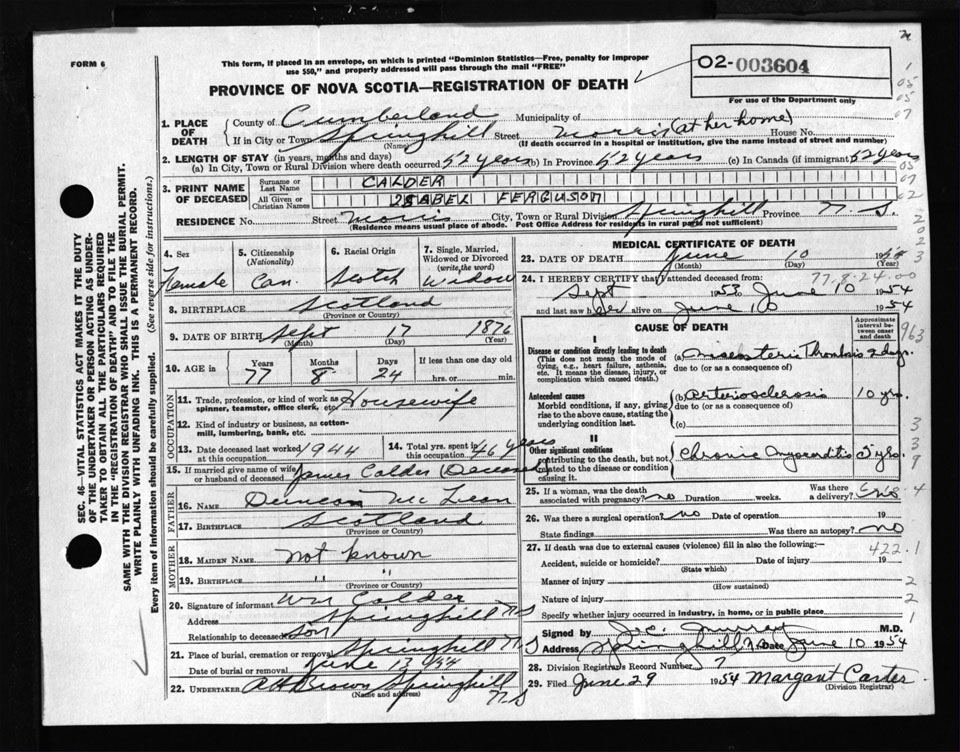 FORM 6
This form, if placed in an envelope, on which is printed "Dominion Statistics—Free, penalty for improper
use $50," and properly addressed will pass through the mail "FREE"
02-003604
For use of the Department only
PROVINCE OF NOVA SCOTIA—REGISTRATION OF DEATH
1. PLACE OF DEATH
County of Cumberland Municipality of
If in City or Town Springhill Street Morris (at her home) House No.
(Name) (If death occurred in a hospital or institution, give the name instead of street and number)
2. LENGTH OF STAY (in years, months and days)
(a) In City, Town or Rural Division where death occurred 52 years (b) In Province 52 years (c) In Canada (if immigrant) 52 years
3. PRINT NAME OF DECEASED
Surname or Last Name CALDER
All Given or Christian Names ISABEL FERGUSON
RESIDENCE No. Street Morris City, Town or Rural Division Springhill Province N.S.
(Residence means usual place of abode. Post Office Address for residents in rural parts not sufficient)
4. Sex Female
5. Citizenship (Nationality) Can.
6. Racial Origin Scotch
7. Single, Married, Widowed or Divorced (write the word) Widow
8. BIRTHPLACE Scotland
(Province or Country)
9. DATE OF BIRTH Sept 17 1876
(Month) (Day) (Year)
10. AGE in Years 77 Months 8 Days 24 If less than one day old hrs. or min.
OCCUPATION
11. Trade, profession, or kind of work as spinner, teamster, office clerk, etc. Housewife
12. Kind of industry or business, as cotton-mill, lumbering, bank, etc.
13. Date deceased last worked at this occupation 1944
14. Total yrs. spent in this occupation 46 years
15. If married give name of wife or husband of deceased James Calder (Deceased)
FATHER
16. Name Duncan McLean
17. BIRTHPLACE Scotland
(Province or Country)
MOTHER
18. MAIDEN NAME Not known
19. BIRTHPLACE " "
(Province or Country)
20. Signature of informant Wm Calder
Address Springhill NS
Relationship to deceased Son
21. Place of burial, cremation or removal Springhill NS
Date of burial or removal June 13
22. UNDERTAKER Brown Springhill
(Name and address) N S
MEDICAL CERTIFICATE OF DEATH
23. DATE OF DEATH June 10 19
(Month) (Day) (Year)
77.8.24.00
24. I HEREBY CERTIFY that I attended deceased from:
Sept 1953 to June 10 1954
and last saw her alive on June 10 1954
CAUSE OF DEATH
Approximate interval between onset and death
I
Disease or condition directly leading to death
(This does not mean the mode of dying, e.g., heart failure, asthenia, etc. It means the disease, injury, or complication which caused death.)
(a) Mesenteric Thrombosis 2 days
due to (or as a consequence of)
Antecedent causes
Morbid conditions, if any, giving rise to the above cause, stating the underlying condition last.
(b) Arteriosclerosis 10 yrs.
due to (or as a consequence of)
(c)
II
Other significant conditions
contributing to the death, but not related to the disease or condition causing it.
Chronic Myocarditis 5 yrs.
25. If a woman, was the death associated with pregnancy? no Duration weeks. Was there a delivery? no
26. Was there a surgical operation? no Date of operation 19
State findings Was there an autopsy? no
27. If death was due to external causes (violence) fill in also the following:— 422.1
Accident, suicide or homicide? Date of injury 19
(State which)
Manner of injury
(How sustained)
Nature of injury
Specify whether injury occurred in industry, in home, or in public place
Signed by Murray M.D.
Address Springhill Date June 10 1954
28. Division Registrar's Record Number 7
29. Filed June 29 1954 Margaret Carter
(Division Registrar)
SEC. 46—VITAL STATISTICS ACT MAKES IT THE DUTY
OF THE UNDERTAKER OR PERSON ACTING AS UNDER-
TAKER TO OBTAIN ALL THE PARTICULARS REQUIRED
IN THE "REGISTRATION OF DEATH" AND TO FILE THE
SAME WITH THE DIVISION REGISTRAR WHO SHALL ISSUE THE BURIAL PERMIT.
WRITE PLAINLY WITH UNFADING INK. THIS IS A PERMANENT RECORD.
Every item of information should be carefully supplied. (See reverse side for instructions.)